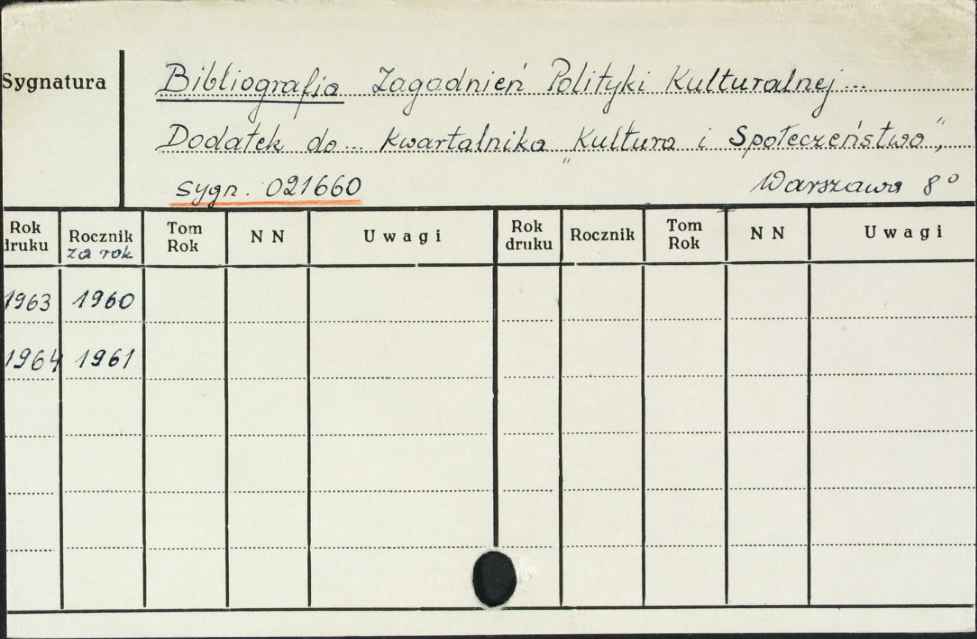 Sygnatura
Bibliografia Zagadnień Polityki Kulturalnej...
Dodatek do... kwartalnika "Kultura i Społeczeństwo",
sygn. 021660 Warszawa 8°
Rok druku Rocznik za rok Tom Rok NN Uwagi Rok druku Rocznik Tom Rok NN Uwagi
1963 1960
1964 1961